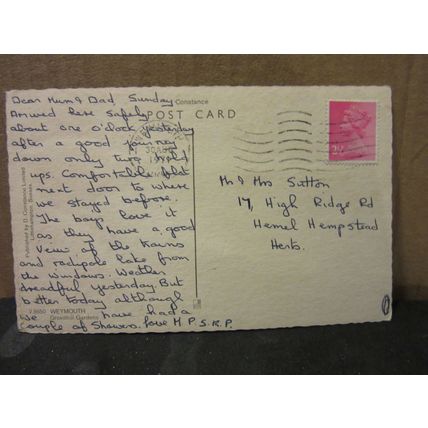 Dear Mum & Dad Sunday
Constance
Arrived here Safely
POST CARD
about one o'clock yesterday
after a good journey
down only two hold
ups. Comfortable flat
next door to where
we stayed before.
The boys love it
as they have a good
view of the trains
and radipole lake from
the windows. Weather
dreadful yesterday. But
better today although
we have had a
couple of Showers. love M.P.S.R.P.
Published by D. Constance Limited
Littlehampton, Sussex
WEYMOUTH
Greenhill Gardens
Mr & Mrs Sutton
17, High Ridge Rd
Hemel Hempstead
Herts.